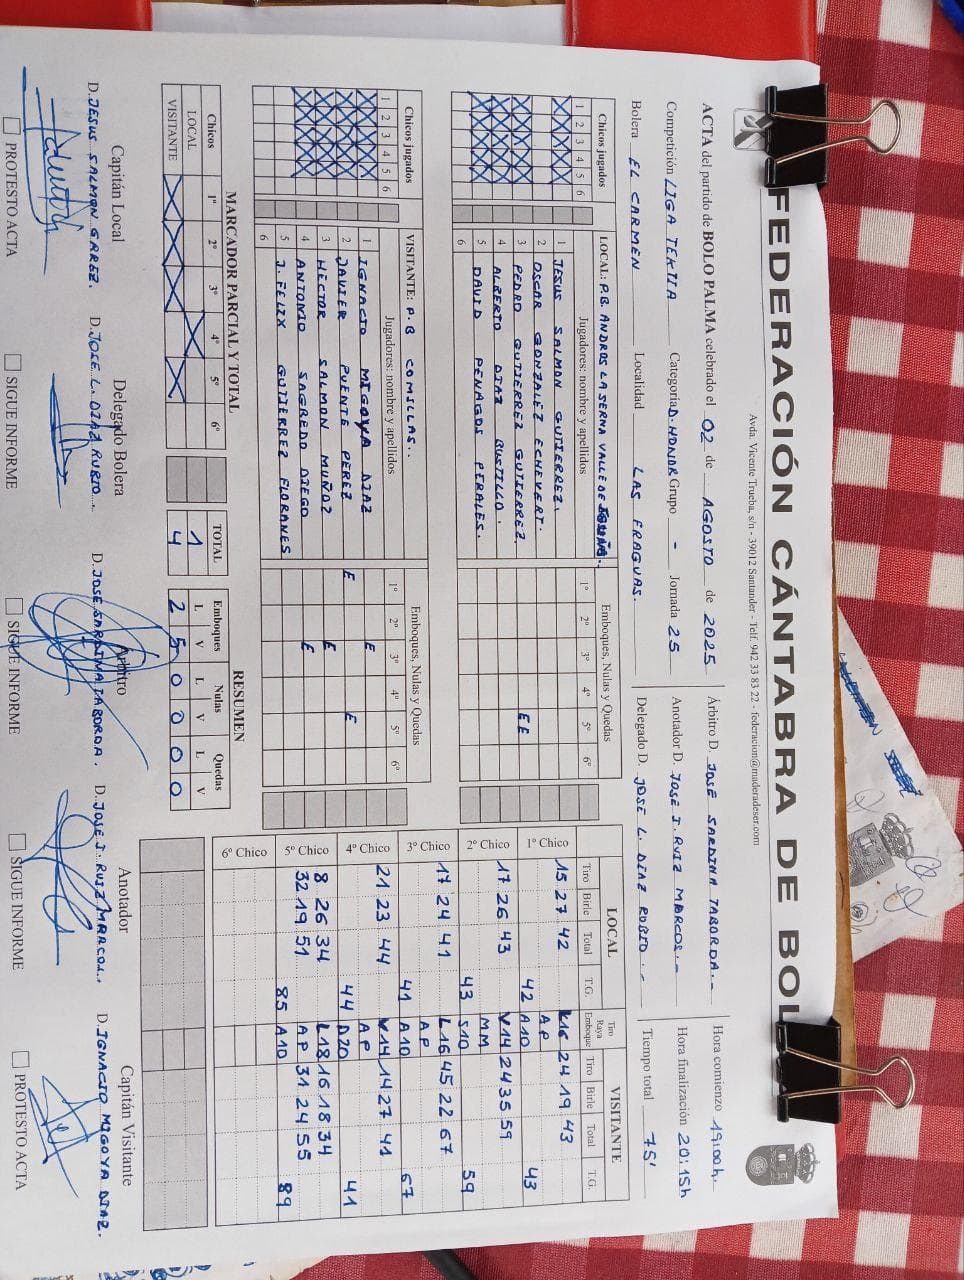 FEDERACIÓN CÁNTABRA DE BOL
Avda. Vicente Trueba, s/n - 39012 Santander - Telf. 942 33 83 22 - federacion@maderadeser.com
ACTA del partido de BOLO PALMA celebrado el 02 de AGOSTO de 2025
Árbitro D. JOSE SARDINA TABORDA.-
Hora comienzo 19:00h.
Competición LIGA TEXTIA Categoría D. HONOR Grupo - Jornada 25
Anotador D. JOSE J. RUIZ MARCOS.-
Hora finalización 20:15h
Bolera EL CARMEN Localidad LAS FRAGUAS.
Delegado D. JOSE L. DIAZ RUBIO.-
Tiempo total 75'
Chicos jugados
1 2 3 4 5 6
LOCAL: P.B. ANDROS LA SERNA VALLE DE
Jugadores: nombre y apellidos
Emboques, Nulas y Quedas
1º 2º 3º 4º 5º 6º
1 JESUS SALMON GUTIERREZ.
2 OSCAR GONZALEZ ECHEVERT.
3 PEDRO GUTIERREZ GUTIERREZ. E E
4 ALBERTO DIAZ BUSTILLO.
5 DAVID PENAGOS PERALES.
6
Chicos jugados
1 2 3 4 5 6
VISITANTE: P.B COMILLAS..
Jugadores: nombre y apellidos
Emboques, Nulas y Quedas
1º 2º 3º 4º 5º 6º
1 IGNACIO MIGOYA DIAZ E
2 JAVIER PUENTE PEREZ E E
3 HECTOR SALMON MUÑOZ E
4 ANTONIO SAGREDO DIEGO E
5 J. FELIX GUTIERREZ FLORANES
6
MARCADOR PARCIAL Y TOTAL
Chicos 1º 2º 3º 4º 5º 6º TOTAL
LOCAL X 1
VISITANTE X X X X 4
RESUMEN
Emboques Nulas Quedas
L V L V L V
2 5 0 0 0 0
LOCAL VISITANTE
Tiro Birle Total T.G. Tiro Raya Emboque Tiro Birle Total T.G.
1º Chico 15 27 42 K16 24 19 43
AP
42 A10 43
2º Chico 17 26 43 V14 24 35 59
MM
43 S10 59
3º Chico 17 24 41 L16 45 22 67
AP
41 A10 67
4º Chico 21 23 44 V14 14 27 41
AP
44 D20 41
5º Chico 8 26 34 L18 16 18 34
32 19 51 AP 31 24 55
85 A10 89
6º Chico
Capitán Local
D. JESUS SALMON GRREZ.
PROTESTO ACTA
Delegado Bolera
D. JOSE L. DIAZ RUBIO.
SIGUE INFORME
Árbitro
D. JOSE SARDINA TABORDA.
SIGUE INFORME
Anotador
D. JOSE J. RUIZ MARCOS.
SIGUE INFORME
Capitán Visitante
D. IGNACIO MIGOYA DIAZ.
PROTESTO ACTA